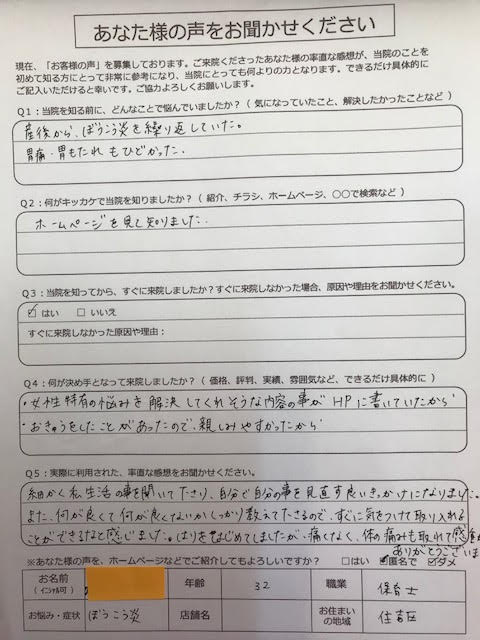 あなた様の声をお聞かせください
現在、「お客様の声」を募集しております。ご来院くださったあなた様の率直な感想が、当院のことを
初めて知る方にとって非常に参考になり、当院にとっても何よりの力となります。できるだけ具体的に
ご記入いただけると幸いです。ご協力よろしくお願いします。
Q1:当院を知る前に、どんなことで悩んでいましたか?(気になっていたこと、解決したかったことなど)
産後から、ぼうこう炎を繰り返していた。
胃痛・胃もたれもひどかった.
Q2:何がキッカケで当院を知りましたか?(紹介、チラシ、ホームページ、〇〇で検索など)
ホームページを見て知りました.
Q3:当院を知ってから、すぐに来院しましたか?すぐに来院しなかった場合、原因や理由をお聞かせください。
☑ はい □ いいえ
すぐに来院しなかった原因や理由:
Q4:何が決め手となって来院しましたか?(価格、評判、実績、雰囲気など、できるだけ具体的に)
・女性特有の悩みを解決してくれそうな内容の事がHPに書いていたから
・おきゅうをしたことがあったので、親しみやすかったから
Q5:実際に利用された、率直な感想をお聞かせください。
細かく私生活の事を聞いて下さり、自分で自分の事を見直す良いきっかけになりました。
また、何が良くて何が良くないかしっかり教えて下さるので、すぐに気をつけて取り入れる
ことができるなと感じました。はりをはじめてしましたが、痛くなく、体の痛みも取れて
ありがとうございま
※あなた様の声を、ホームページなどでご紹介してもよろしいですか? □はい ☑匿名で ☑ダメ
お名前
(イニシャル可)
年齢
32
職業
保育士
お悩み・症状
ぼうこう炎
店舗名
お住まい
の地域
住吉区